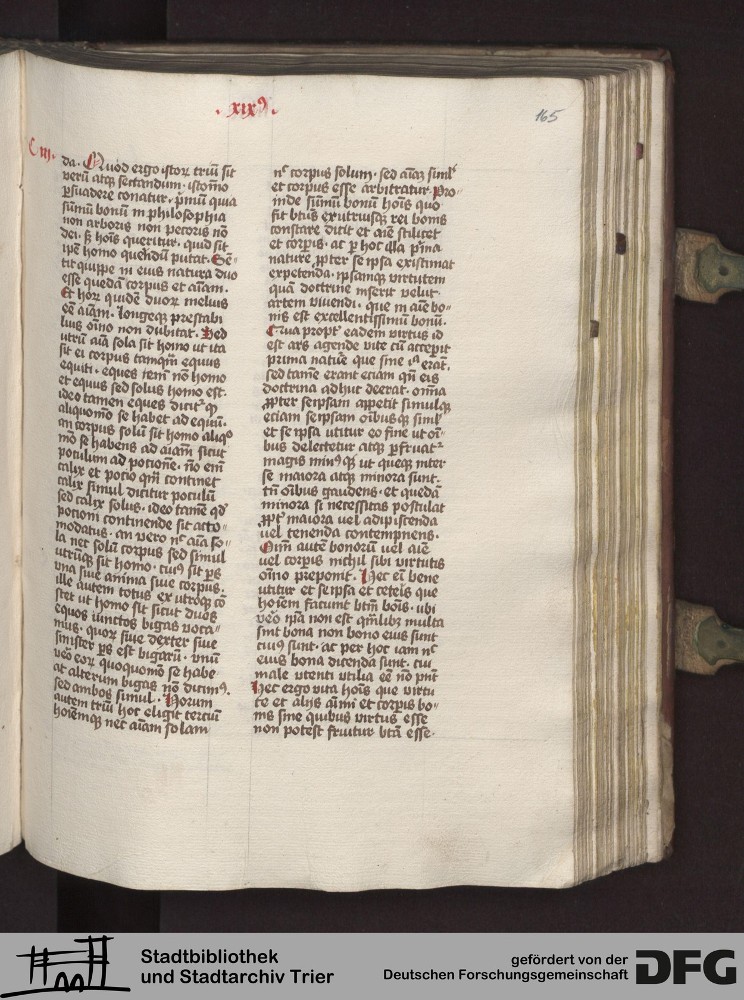 . xix⁹ .
165
C iij.
da. Quod ergo istoꝝ triū sit
verū atqꝫ sectandum. istomō
ꝑsuadere conatur. pᵐiū quia
sūmū bonū in philosophia
non arboris non pecoris nō
dei. sꝫ hōis queritur. quid sit
ipē homo querēdū putat. Sē⸗
tit quippe in eius natura duo
esse quedā corpus et aīam.
Et hoꝝ quidē duoꝝ melius
eē aīam. longeqꝫ prestabi
lius oīno non dubitat. Sed
utrū aīa sola sit homo ut ita
sit ei corpus tamqᵐ equus
equiti. eques eniᵐ nō homo
et equus sed solus homo est.
ideo tamen eques dicitᵘʳ qᵈ
aliquomō se habet ad equū.
an corpus solū sit homo aliqᵒ
mō se habens ad aīam sicut
poculum ad potionē. nō eīm
calix et potio qᵐ continet
calix simul dicitur poculū
sed calix solus. ideo tamē qᵈ
potioni continende sit acco⸗
modatus. an vero nᶜ aīa so⸗
la nec solū corpus sed simul
utrūqꝫ sit homo. cuiꝰ sit ꝑs
una siue anima siue corpus.
ille autem totus ex utroqꝫ cō
stet ut homo sit sicut duos
equos iunctos bigas voca⸗
mus. quoꝝ siue dexter siue
sinister ꝑs est bigarū. unū
vēo eoꝝ quoquomō se habe
at alterum bigas nō dicimꝰ.
sed ambos simul. Horum
autem triū hoc eligit terciū
hoīemqꝫ nec aīam solam
nᶜ corpus solum. sed aīaꝫ simˡ
et corpus esse arbitratur. Pro⸗
inde sūmū bonū hōis quo
fit btūs ex utriusqꝫ rei bonis
constare dicit et aīe scilicet
et corpis. ac ꝑ hoc illa pᵐa
nature ꝓpter se ipsa existimat
expetenda. ipsamqꝫ virtutem
quā doctrine inserit velut
artem viuendi. que in aīe bo⸗
nis est excellentissimū bonū.
Qua propt eadem virtus id
est ars agende vite cū accepit
prima natuē que sine iᵃ erāt.
sed tamē erant eciam qn̄ eis
doctrina adhuc deerat. oīa
ꝓpter seipsam appetit simulqꝫ
eciam seipsam oībusqꝫ simˡ
et se ipsa utitur eo fine ut oī⸗
bus delectetur atqꝫ ꝑfruatᵘʳ
magis minꝰqꝫ ut queqꝫ inter
se maiora atqꝫ minora sunt.
tn̄ oībus gaudens. et quedā
minora si necessitas postulat
ꝓpt maiora vel adipiscenda
vel tenenda contempnens.
Oīm autē bonorū vel aīe
vel corpis nichil sibi virtutis
oīno preponit. Hec eī bene
utitur et seipsa et ceteis que
hoīem faciunt btm̄ bōis. ubi
vēo ipa non est qᵐlibꝫ multa
sint bona non bono eius sunt
cuiꝰ sunt. ac per hoc iam nᶜ
eius bona dicenda sunt. cui
male utenti utilia eē nō pn̄t
Hec ergo vita hōis que virtu
te et alijs aīmi et corpis bo⸗
nis sine quibus virtus esse
non potest fruitur btā esse
Stadtbibliothek
und Stadtarchiv Trier
gefördert von der
Deutschen Forschungsgemeinschaft
DFG